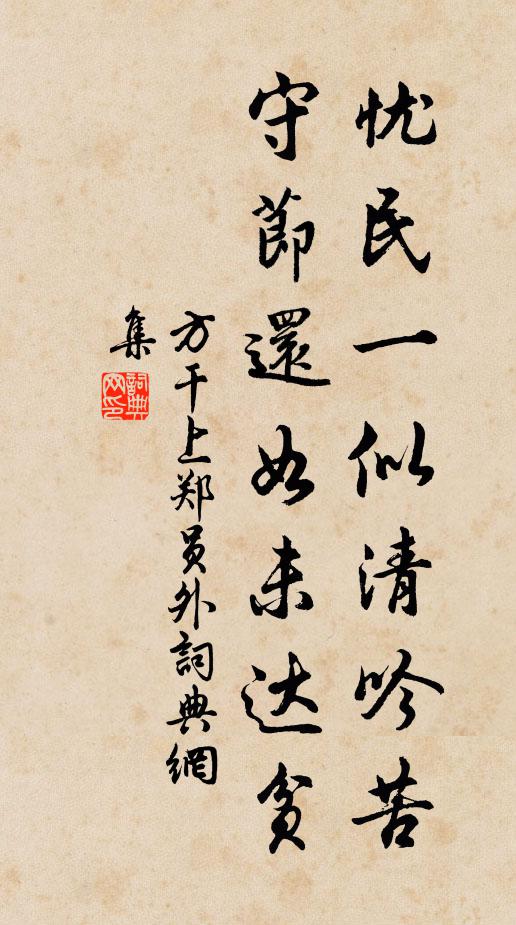 忧民一似清吟苦
守節還如未达貧
方干上郑员外詞典網
集
詞典
网印